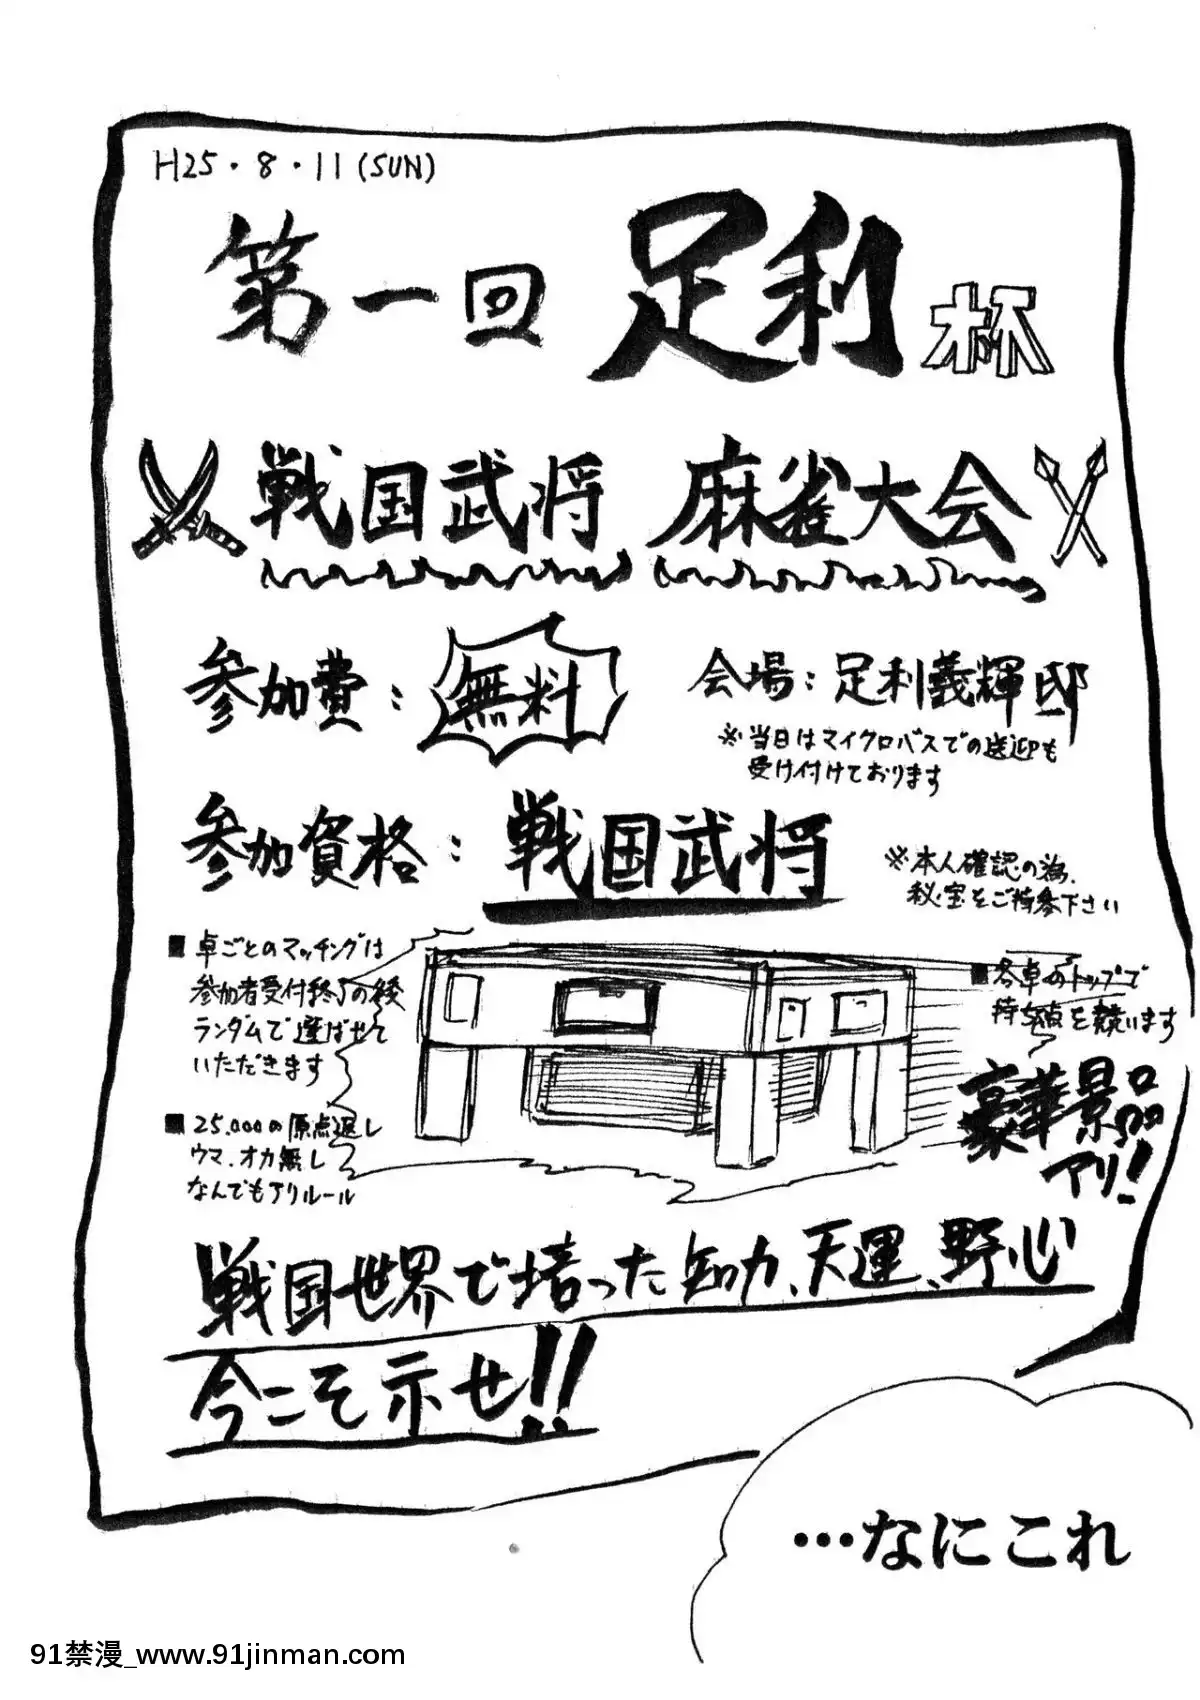 H25・8・11(SUN)
第一回 足利杯
戦国武将 麻雀大会
参加費：無料
会場：足利義輝邸
※当日はマイクロバスでの送迎も
受け付けております
参加資格：戦国武将
※本人確認の為、
秘宝をご持参下さい
■卓ごとのマッチングは
参加者受付終了の後
ランダムで選ばせて
いただきます
■25,000の原点返し
ウマ、オカ無し
なんでもアリルール
■各卓のトップで
持ち点を競います
豪華景品
アリ！
戦国世界で培った知力、天運、野心
今こそ示せ!!
…なにこれ
91禁漫_www.91jinman.com